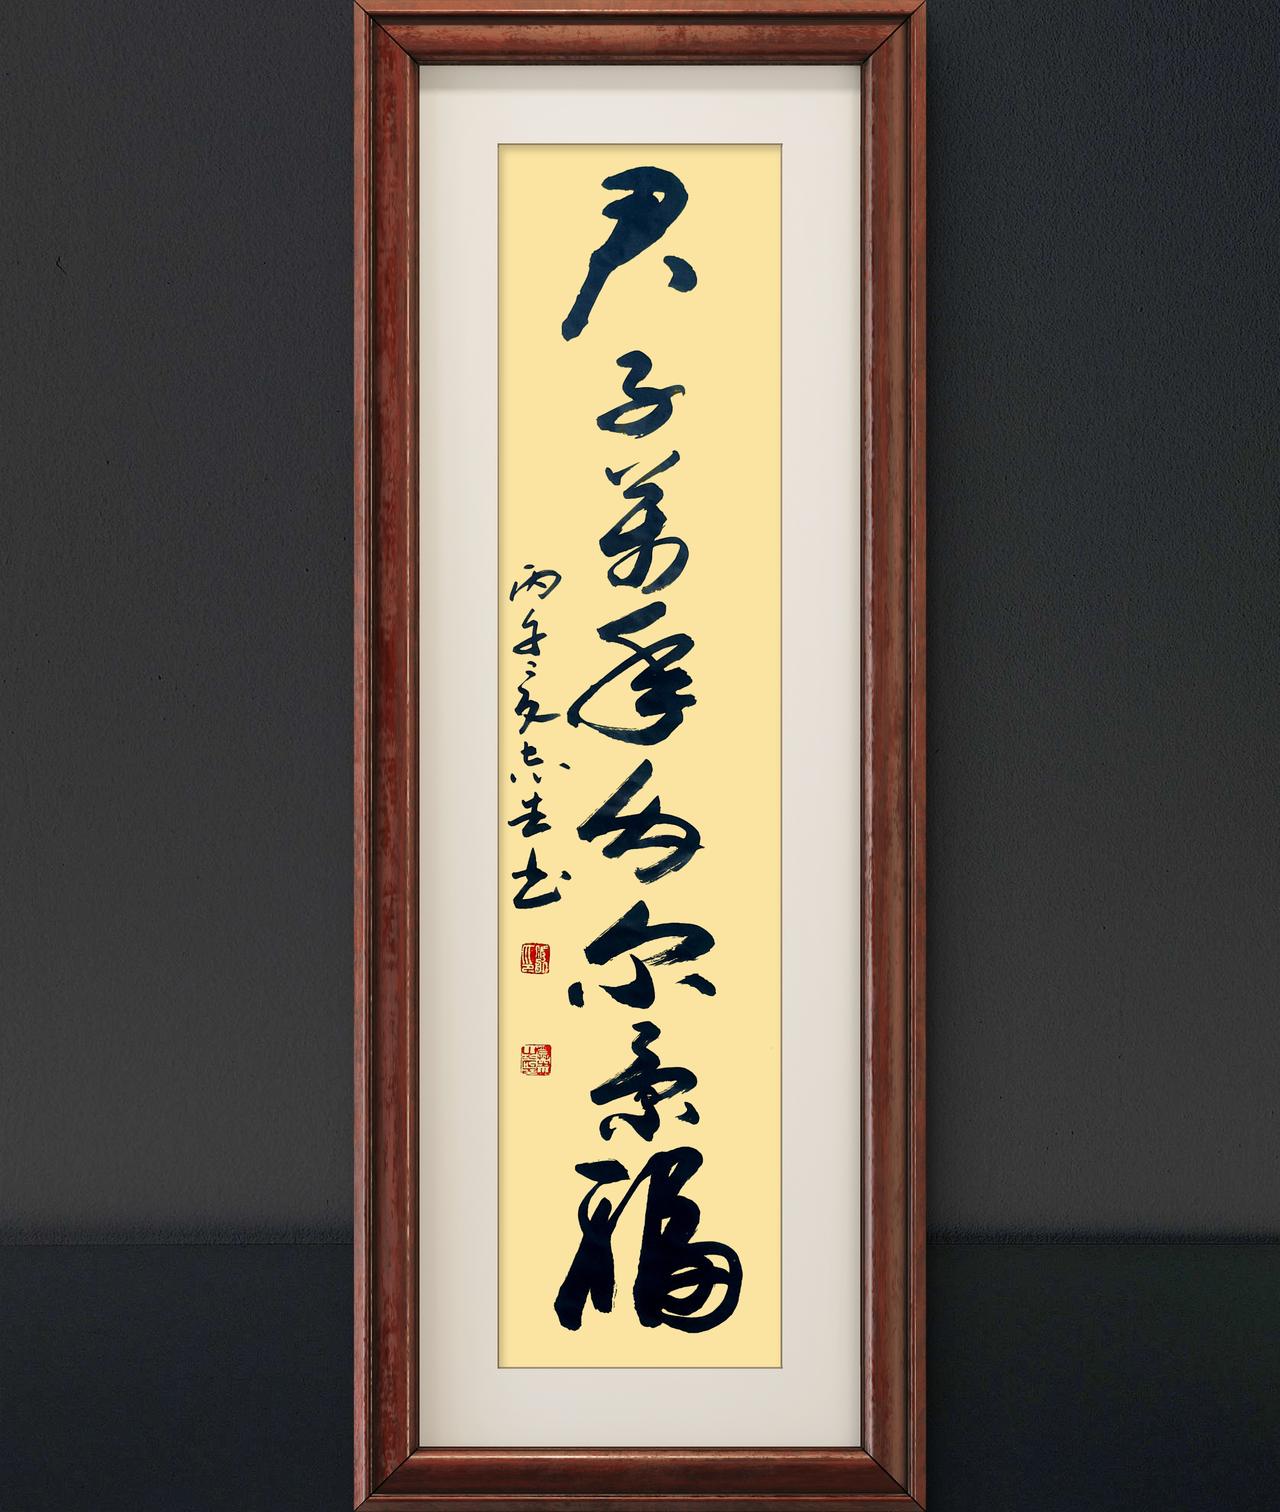 君子萬年介尔景福
丙午之夏志生书